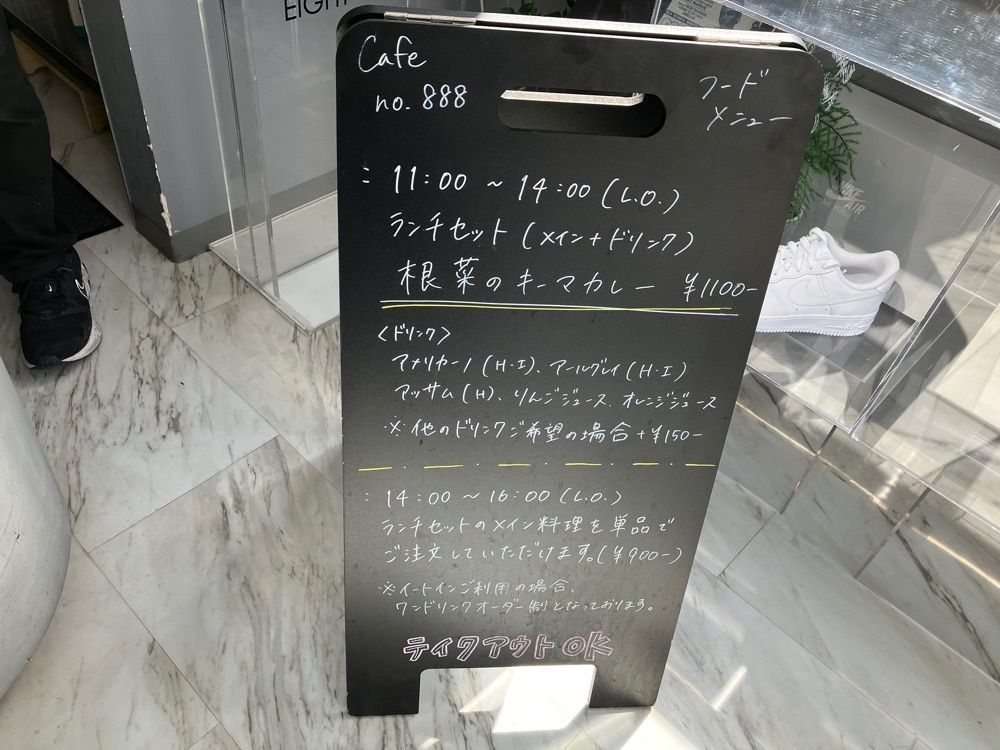 EIGHT
Cafe
no. 888
フード
メニュー
: 11:00 ~ 14:00 (L.O.)
ランチセット (メイン+ドリンク)
根菜のキーマカレー ¥1100-
<ドリンク>
アメリカーノ (H・I)、アールグレイ (H・I)
アッサム (H)、りんごジュース、オレンジジュース
※他のドリンクご希望の場合 +¥150-
: 14:00 ~ 16:00 (L.O.)
ランチセットのメイン料理を単品で
ご注文していただけます。(¥900-)
※イートインご利用の場合、
ワンドリンクオーダー制となっております。
テイクアウトOK
NIKE
AIR